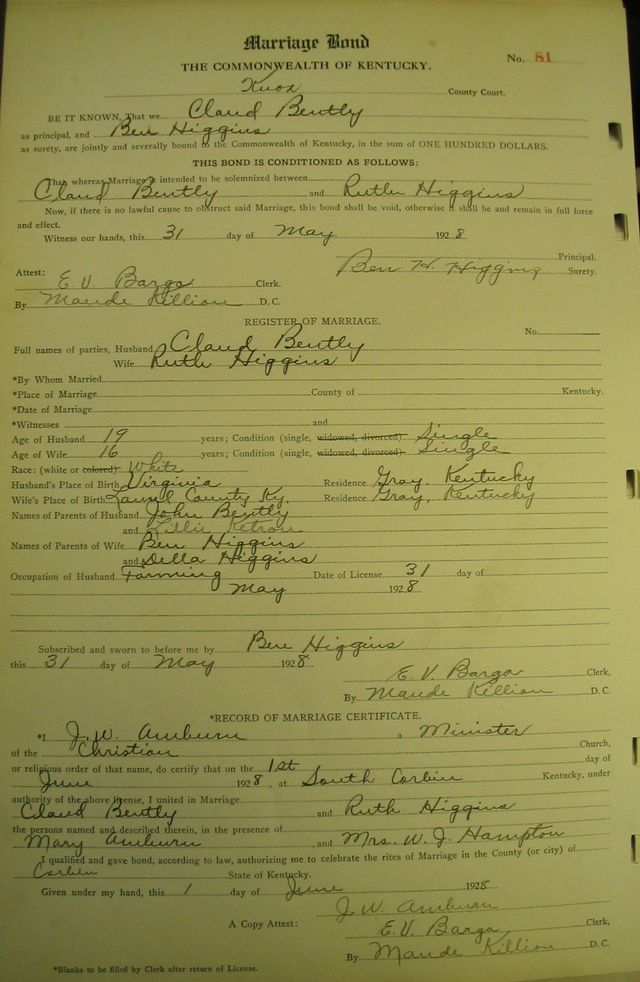 Marriage Bond
THE COMMONWEALTH OF KENTUCKY.
No. 81
Knox County Court.
BE IT KNOWN, That we Claud Bently
as principal, and Ben Higgins
as surety, are jointly and severally bound to the Commonwealth of Kentucky, in the sum of ONE HUNDRED DOLLARS.
THIS BOND IS CONDITIONED AS FOLLOWS:
That whereas Marriage is intended to be solemnized between
Claud Bently and Ruth Higgins
Now, if there is no lawful cause to obstruct said Marriage, this bond shall be void, otherwise it shall be and remain in full force
and effect.
Witness our hands, this 31 day of May 1928
Principal.
Attest: Ben H. Higgins Surety.
E. V. Barga Clerk.
By Maude Killion D. C.
REGISTER OF MARRIAGE.
No.
Full names of parties, Husband Claud Bently
Wife Ruth Higgins
*By Whom Married
*Place of Marriage County of Kentucky.
*Date of Marriage
*Witnesses and
Age of Husband 19 years; Condition (single, widowed, divorced) Single
Age of Wife 16 years; Condition (single, widowed, divorced) Single
Race: (white or colored) White
Husband's Place of Birth Virginia Residence Gray, Kentucky
Wife's Place of Birth Laurel County Ky. Residence Gray, Kentucky
Names of Parents of Husband John Bently
and Lillie Ketron
Names of Parents of Wife Ben Higgins
and Della Higgins
Occupation of Husband Farming Date of License 31 day of
May 1928
Subscribed and sworn to before me by Ben Higgins
this 31 day of May 1928
E. V. Barga Clerk,
By Maude Killion D. C.
*RECORD OF MARRIAGE CERTIFICATE.
*I J. W. Amburn a Minister
of the Christian Church,
or religious order of that name, do certify that on the 1st day of
June 1928, at South Corbin Kentucky, under
authority of the above license, I united in Marriage
Claud Bently and Ruth Higgins
the persons named and described therein, in the presence of
Mary Amburn and Mrs. W. J. Hampton
I qualified and gave bond, according to law, authorizing me to celebrate the rites of Marriage in the County (or city) of
Corbin State of Kentucky.
Given under my hand, this 1 day of June 1928
J. W. Amburn
A Copy Attest: E. V. Barga Clerk,
By Maude Killion D. C.
*Blanks to be filled by Clerk after return of License.